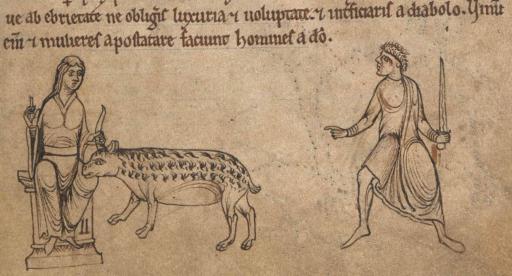 ue ab ebrietate ne oblig̅is luxuria ⁊ uoluptate. ⁊ int̅ficiaris a diabolo. Vinū
eni̅ ⁊ mulieres apostatare faciunt homines a dō.